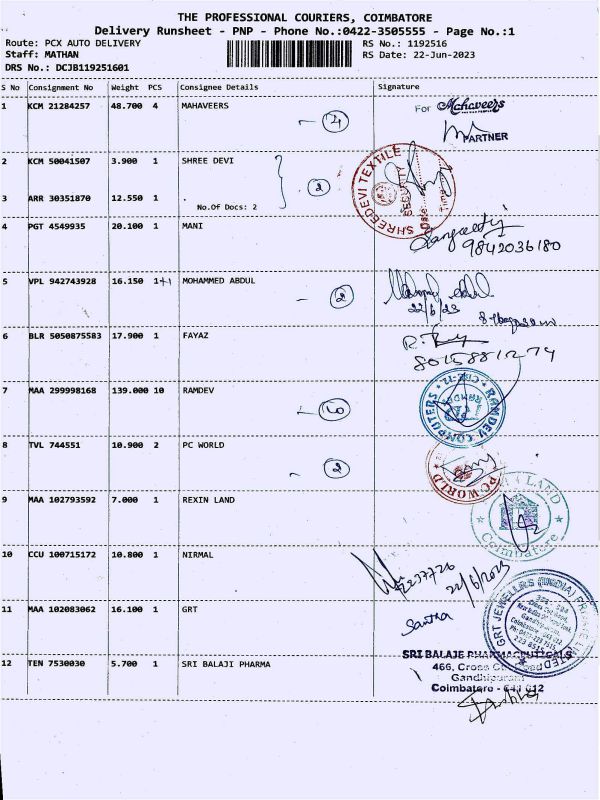 THE PROFESSIONAL COURIERS, COIMBATORE
Delivery Runsheet - PNP - Phone No.:0422-3505555 - Page No.:1
Route: PCX AUTO DELIVERY
RS No.: 1192516
Staff: MATHAN
RS Date: 22-Jun-2023
DRS No.: DCJB119251601
S No Consignment No Weight PCS Consignee Details Signature
1 KCM 21284257 48.700 4 MAHAVEERS For Mahaveers
4
PARTNER
2 KCM 50041507 3.900 1 SHREE DEVI
SHREEDEVI TEXTILE
SECURITY
2
3 ARR 30351870 12.550 1 .
No.Of Docs: 2
4 PGT 4549935 20.100 1 MANI
9842036180
5 VPL 942743928 16.150 1+1 MOHAMMED ABDUL
2
22/6/23
6 BLR 5050875583 17.900 1 FAYAZ
8015881274
7 MAA 299998168 139.000 10 RAMDEV
10
RAMDEV COMPUTERS * CBE-12 *
8 TVL 744551 10.900 2 PC WORLD
2
PC WORLD
9 MAA 102793592 7.000 1 REXIN LAND
LAND
Coimbatore
10 CCU 100715172 10.800 1 NIRMAL
22/6/2023
11 MAA 102083062 16.100 1 GRT
Santha
GRT JEWELLRS (INDIA) PRIVATE LIMITED
12 TEN 7530030 5.700 1 SRI BALAJI PHARMA
SRI BALAJE PHARMACEUTICALS
466, Cross Cut Road
Gandhipuram
Coimbatore - 641 012